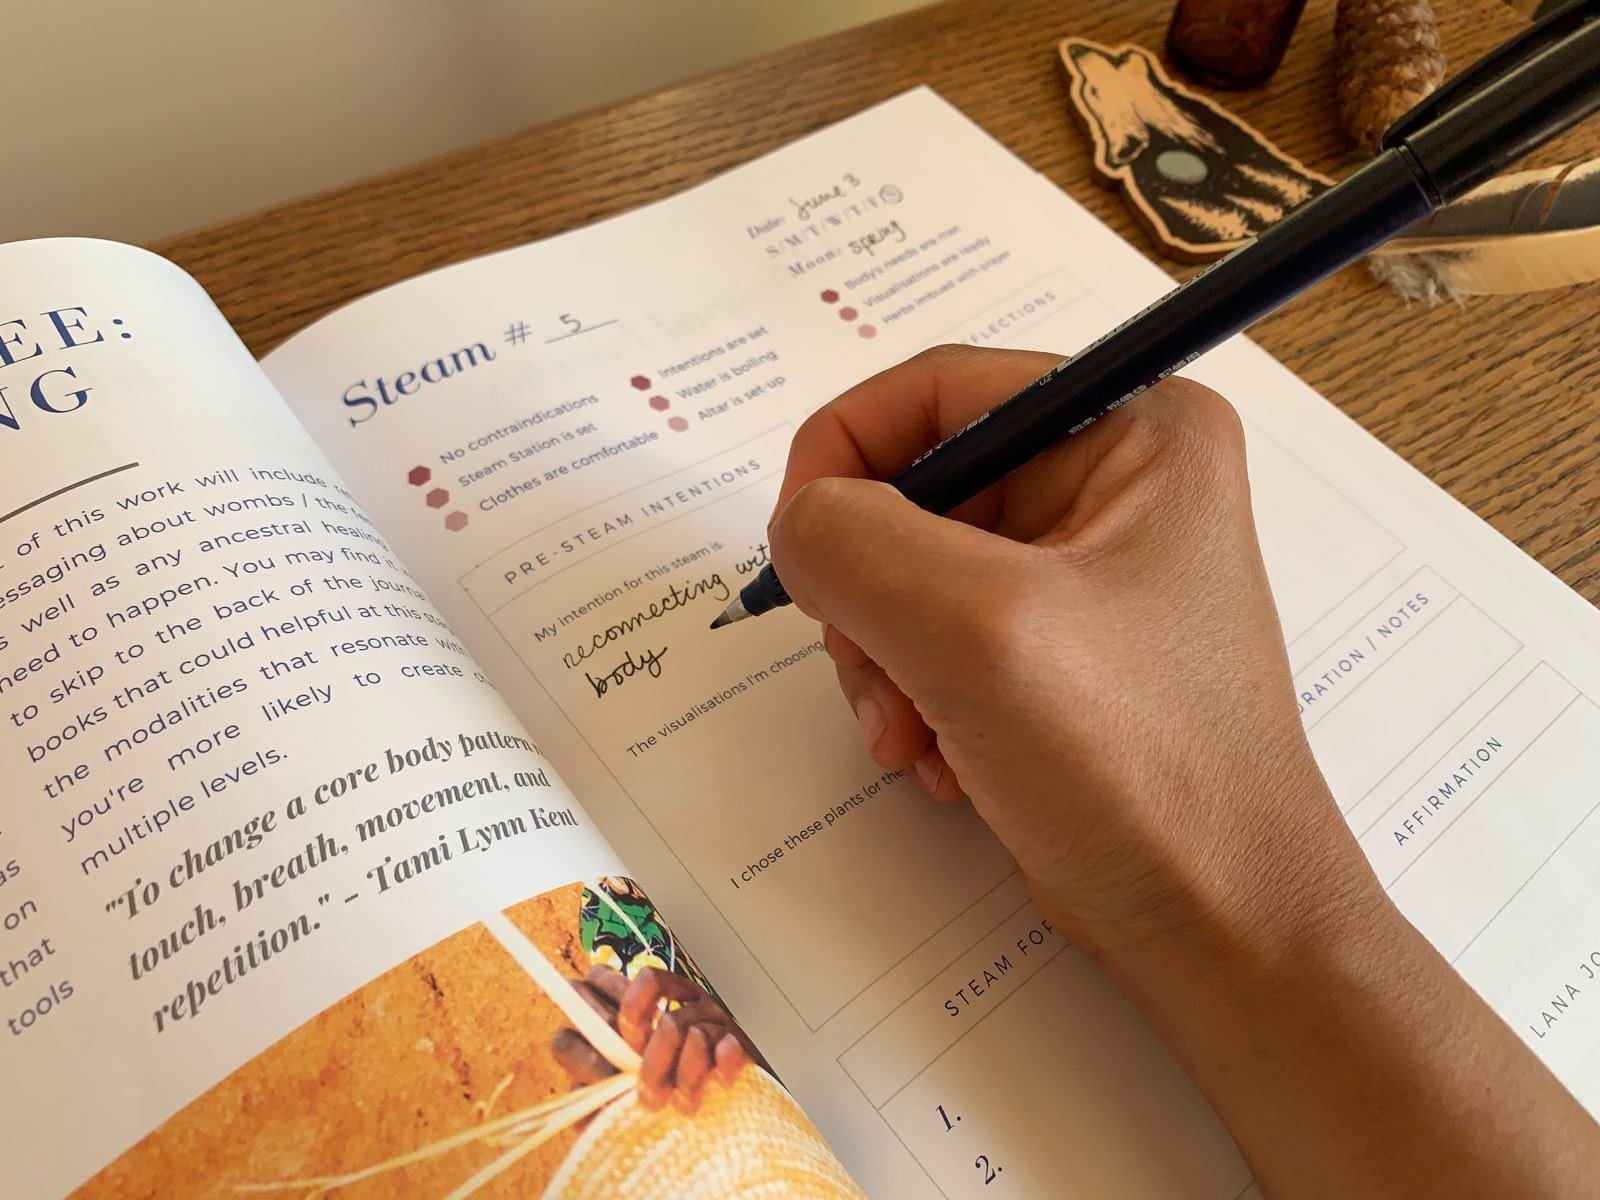 EE:
NG
of this work will include
essaging about wombs / the
s well as any ancestral healing
need to happen. You may find it
to skip to the back of the journal
books that could helpful at this
the modalities that resonate with
you're more likely to create
multiple levels.
as
on
that
tools
"To change a core body pattern
touch, breath, movement, and
repetition." – Tami Lynn Kent
Date: June 3
S/M/T/W/T/F/S
Moon: spring
Steam # 5
No contraindications
Steam Station is set
Clothes are comfortable
Intentions are set
Water is boiling
Altar is set-up
Body's needs are met
Visualisations are ready
Herbs imbued with prayer
PRE-STEAM INTENTIONS
My intention for this steam is:
reconnecting wit
body
The visualisations I'm choosing
I chose these plants (or the
STEAM FOR
1.
2.
FLECTIONS
URATION / NOTES
AFFIRMATION
LANA JO